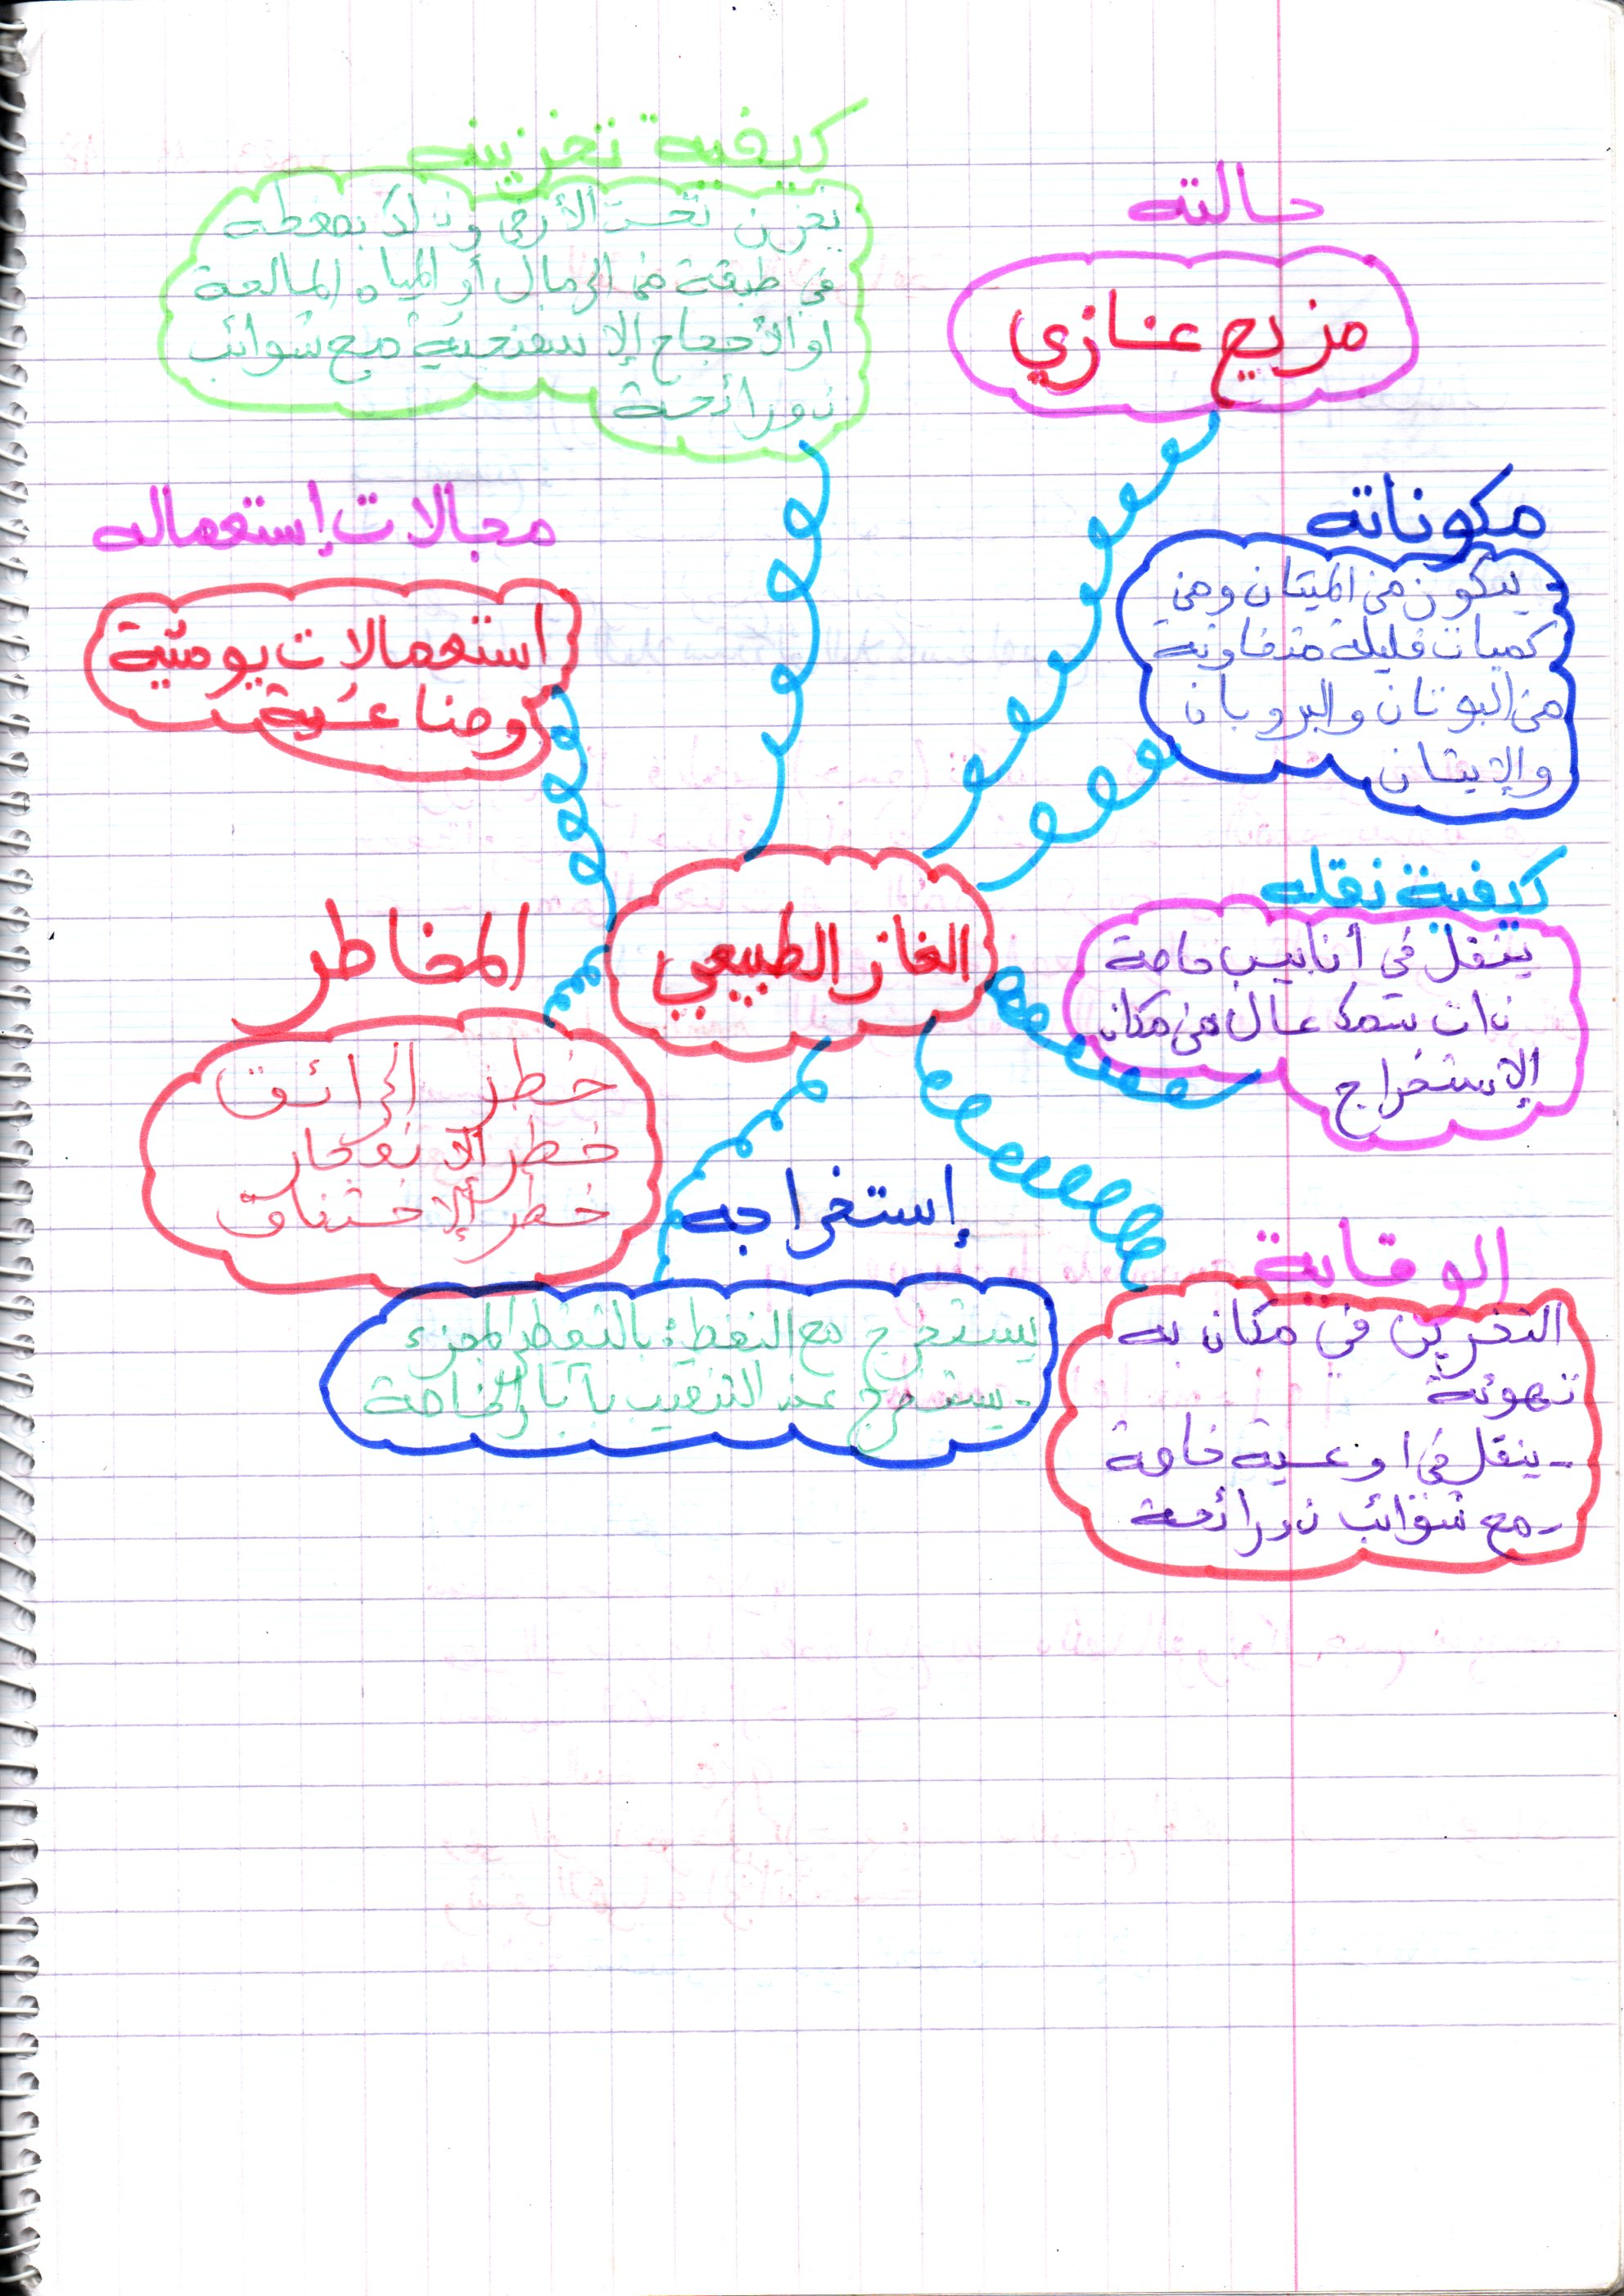 كيفية تخزينه
يخزن تحت الأرض وذلك بضغطه
في طبقة من الرمال أو المياه المالحة
او الأحجار الإسفنجية مع شوائب
ذو رائحة
حالته
مزيج غازي
مكوناته
يتكون من الميتان ومن
كميات قليلة متفاوتة
من البوتان والبروبان
والإيتان
مجالات إستعماله
استعمالات يومية
وصناعية
الغاز الطبيعي
كيفية نقله
ينقل في أنابيب خاصة
ذات سمك عال من مكان
الإستخراج
المخاطر
خطر الحرائق
خطر الانفجار
خطر الإختناق
إستخراجه
يستخرج مع النفط: بالتقطير المجزء
- يستخرج عند التنقيب بآبار الخاصة
الوقاية
التخزين في مكان به
تهوئة
- ينقل في اوعية خاصة
- مع شوائب ذو رائحة